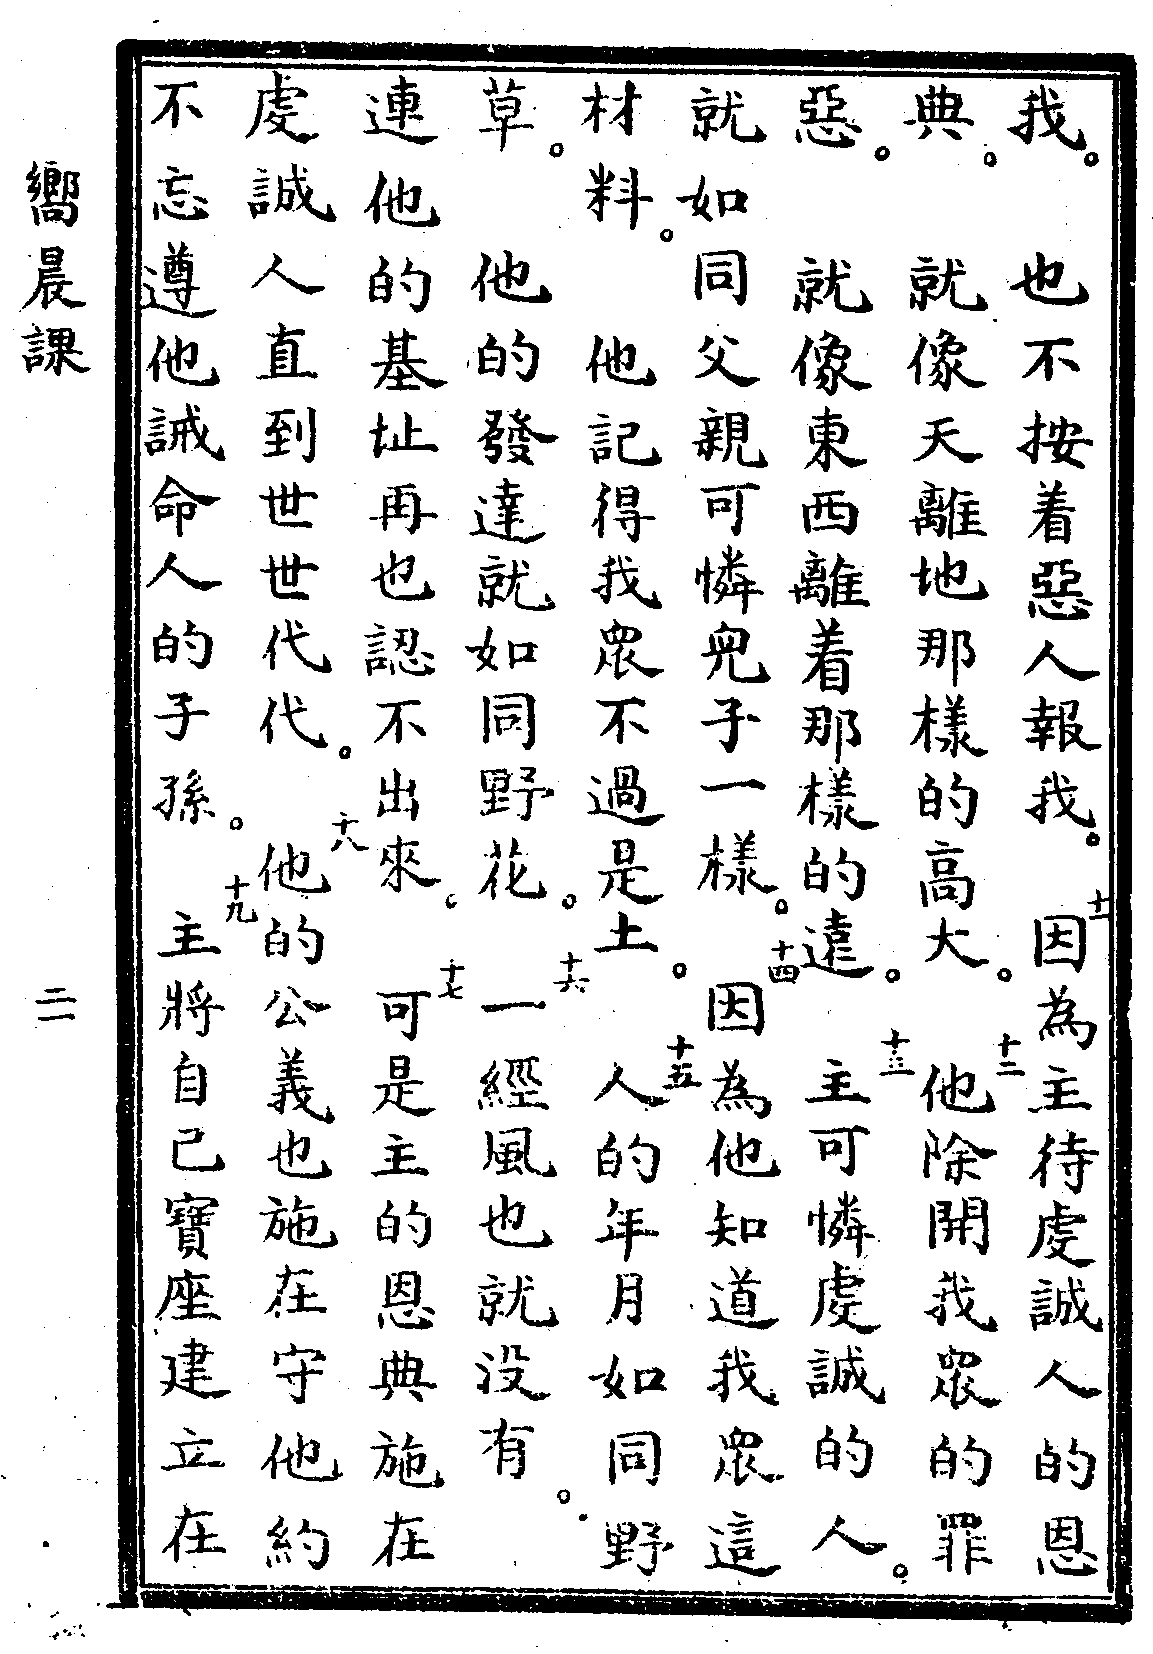 我。也不按着惡人報我。十一因為主待虔誠人的恩
典。就像天離地那樣的高大。十二他除開我眾的罪
惡。就像東西離着那樣的遠。十三主可憐虔誠的人。
就如同父親可憐兒子一樣。十四因為他知道我眾這
材料。他記得我眾不過是土。十五人的年月如同野
草。他的發達就如同野花。十六一經風也就没有。
連他的基址再也認不出來。十七可是主的恩典施在
虔誠人直到世世代代。十八他的公義也施在守他約
不忘遵他誡命人的子孫。十九主將自己寶座建立在
嚮晨課
二